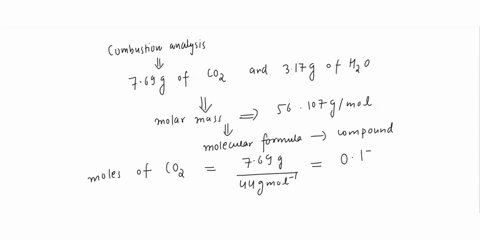 Combustion analysis
⇓
7.69g of CO2 and 3.17g of H2O
⇓
molar mass ⇒ 56.107g/mol
⇓
molecular formula → compound
moles of CO2 = 7.69g / 44gmol⁻¹ = 0.1